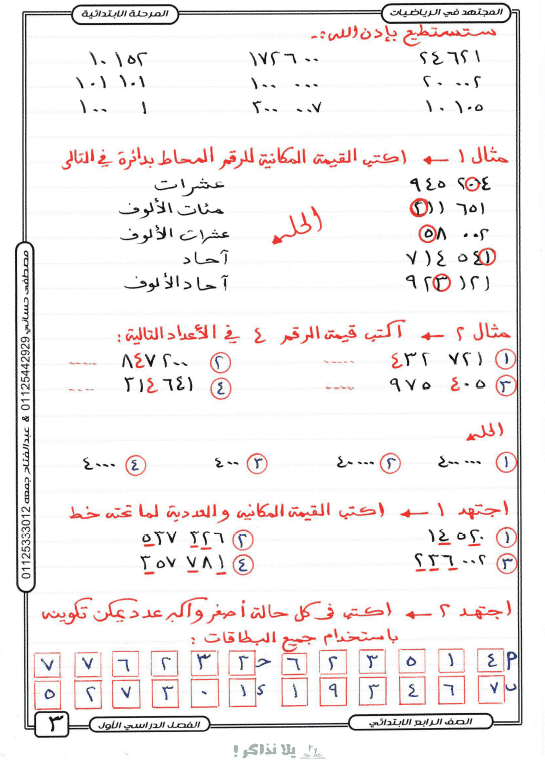 المجتهد في الرياضيات
المرحلة الابتدائية
ستستطيع بإذن الله :-
٢٤ ٦٢١ ١٧٢٦ ٠٠ ١٠ ١٥٢
٢٠ ٠٠٢ ١٠٠ ٠٠٠ ١٠١ ١٠١
١٠ ١٠٥ ٣٠٠ ٠٠٧ ١٠٠ ١
مثال ١ ← اكتب القيمة المكانية للرقم المحاط بدائرة في التالي
٩٤٥ ٢٠٤ عشرات
٢١١ ٦٥١ مئات الألوف
٥٨ ٠٠٢ عشرات الألوف
الحل
٧١٤ ٥٤١ آحاد
٩٢٣ ١٢١ آحاد الألوف
مثال ٢ ← اكتب قيمة الرقم ٤ في الأعداد التالية :
١ ٤٣٢ ٧٢١ ..... ٢ ٨٤٧ ٢٠٠ .....
٣ ٩٧٥ ٤٠٥ ..... ٤ ٣١٤ ٦٤١ .....
الحل
١ ٤٠٠ ٠٠٠ ٢ ٤٠ ٠٠٠ ٣ ٤٠٠ ٤ ٤٠٠٠
اجتهد ١ ← اكتب القيمة المكانيه والعددية لما تحته خط
١ ١٤ ٥٢٠ ٢ ٥٣٧ ٢٢٦
٣ ٢٢٦ ٠٠٢ ٤ ٣٥٧ ٧٨١
اجتهد ٢ ← اكتب في كل حالة أصغر وأكبر عدد يمكن تكوينه
باستخدام جميع البطاقات :
٤ ١ ٥ ٣ ٢ ٦ ح ٢ ٣ ٢ ٦ ٧ ٧
ب ٧ ٦ ٤ ٣ ٩ ١ ء ١ ٠ ٣ ٧ ٢ ٥
مصطفى حسانى 01125442929 & عبدالفتاح جمعه 01125333012
الصف الرابع الابتدائي
الفصل الدراسي الأول
٣
يلا نذاكر !